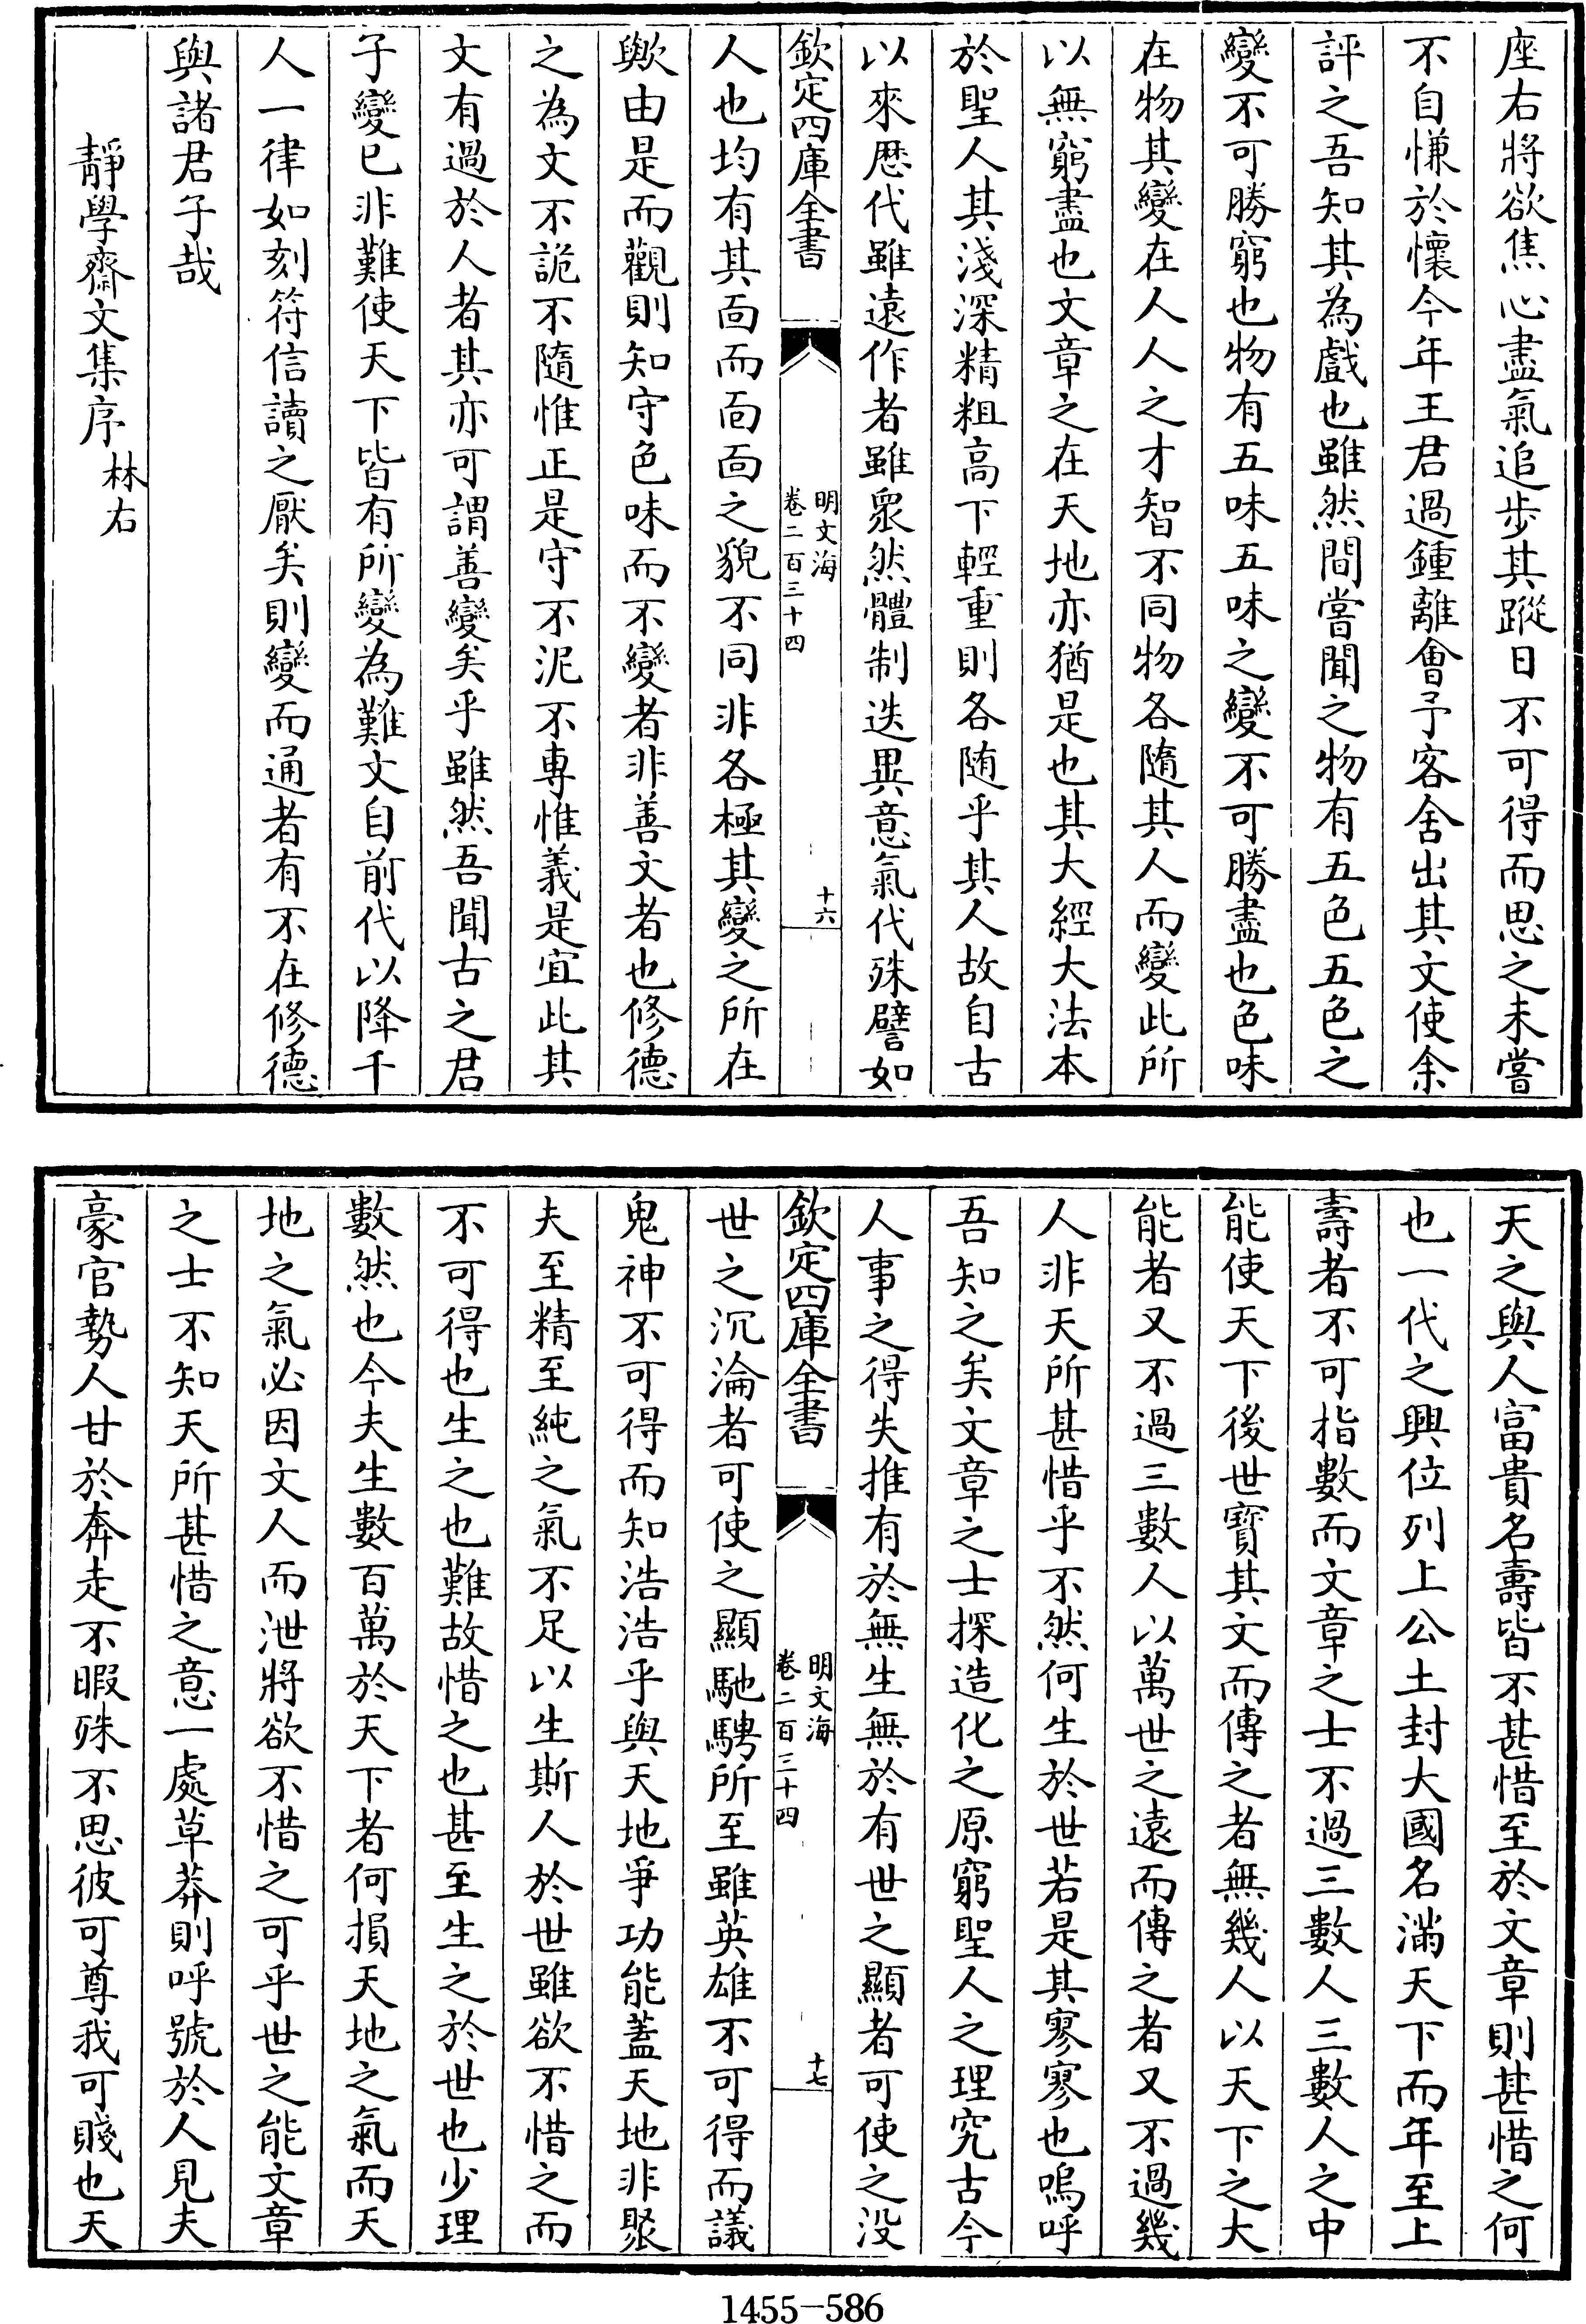 座右將欲焦心盡氣追步其蹤日不可得而思之未嘗
不自慊於懷今年王君過鍾離會予客舍出其文使余
評之吾知其為戲也雖然間嘗聞之物有五色五色之
變不可勝窮也物有五味五味之變不可勝盡也色味
在物其變在人人之才智不同物各隨其人而變此所
以無窮盡也文章之在天地亦猶是也其大經大法本
於聖人其淺深精粗高下輕重則各随乎其人故自古
以來歴代雖遠作者雖衆然體制迭異意氣代殊譬如
欽定四庫全書
明文海
卷二百三十四
十六
人也均有其面而面面之貌不同非各極其變之所在
歟由是而觀則知守色味而不變者非善文者也修德
之為文不詭不隨惟正是守不泥不專惟義是宜此其
文有過於人者其亦可謂善變矣乎雖然吾聞古之君
子變已非難使天下皆有所變為難文自前代以降千
人一律如刻符信讀之厭矣則變而通者有不在修德
與諸君子哉
靜學齋文集序 林右
天之與人富貴名壽皆不甚惜至於文章則甚惜之何
也一代之興位列上公土封大國名滿天下而年至上
壽者不可指數而文章之士不過三數人三數人之中
能使天下後世寶其文而傳之者無幾人以天下之大
能者又不過三數人以萬世之遠而傳之者又不過幾
人非天所甚惜乎不然何生於世若是其寥寥也嗚呼
吾知之矣文章之士探造化之原窮聖人之理究古今
人事之得失推有於無生無於有世之顯者可使之没
欽定四庫全書
明文海
卷二百三十四
十七
世之沉淪者可使之顯馳騁所至雖英雄不可得而議
鬼神不可得而知浩浩乎與天地爭功能蓋天地非聚
夫至精至純之氣不足以生斯人於世雖欲不惜之而
不可得也生之也難故惜之也甚至生之於世也少理
數然也今夫生數百萬於天下者何損天地之氣而天
地之氣必因文人而泄將欲不惜之可乎世之能文章
之士不知天所甚惜之意一處草莽則呼號於人見夫
豪官勢人甘於奔走不暇殊不思彼可尊我可賤也天
1455-586